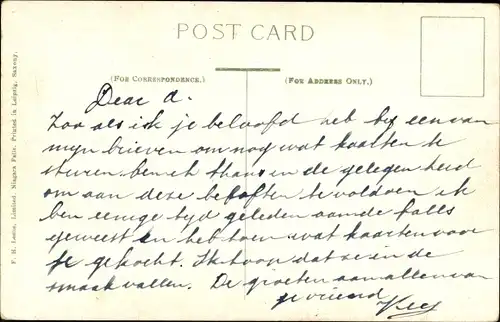 POST CARD
(For Correspondence.)
(For Address Only.)
F. H. Leslie, Limited, Niagara Falls. Printed in Leipzig, Saxony.
Dear A.
Zoo als ik je beloofd heb by een van
myn brieven om nog wat kaarten te
sturen ben ik thans in de gelegenheid
om aan deze beloften te voldoen ik
ben eenige tyd geleden aan de falls
geweest en heb toen wat kaarten voor
je gekocht. Ik hoop dat ze in de
smaak vallen. De groeten aan allen van
je vriend